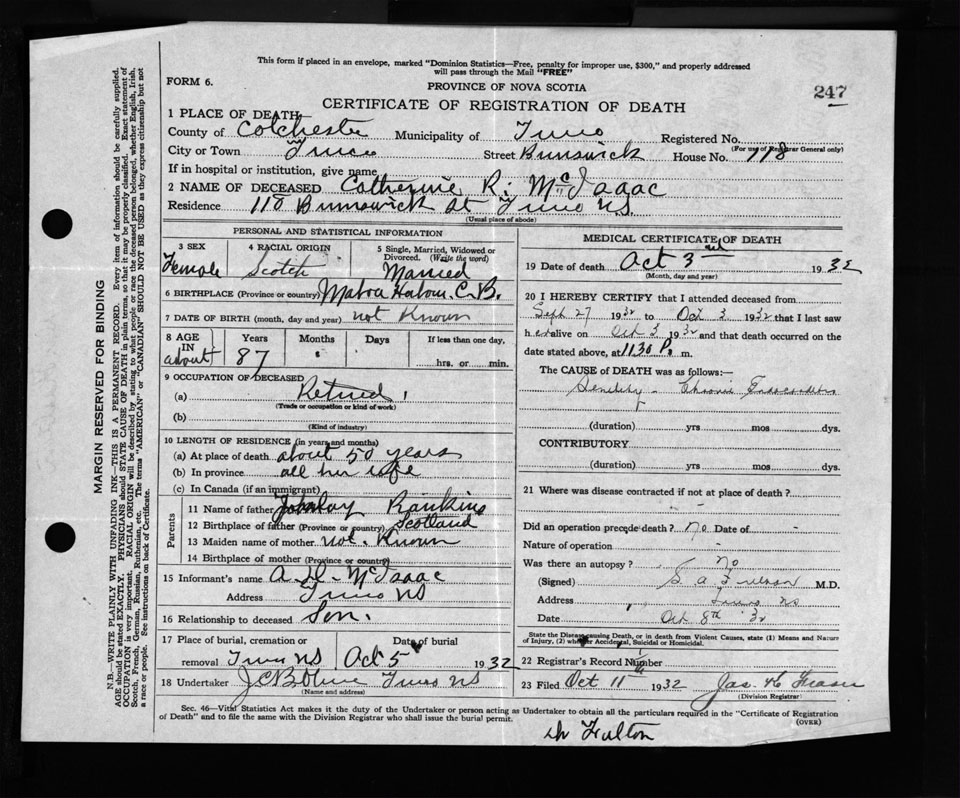 This form if placed in an envelope, marked "Dominion Statistics—Free, penalty for improper use, $300," and properly addressed
will pass through the Mail "FREE"
FORM 6.
PROVINCE OF NOVA SCOTIA
247
CERTIFICATE OF REGISTRATION OF DEATH
1 PLACE OF DEATH
County of Colchester Municipality of Truro Registered No.
(For use of Registrar General only)
City or Town Truro Street Brunswick House No. 118
If in hospital or institution, give name
2 NAME OF DECEASED Catherine R. McIsaac
Residence 118 Brunswick St Truro N.S.
(Usual place of abode)
PERSONAL AND STATISTICAL INFORMATION
3 SEX Female
4 RACIAL ORIGIN Scotch
5 Single, Married, Widowed or
Divorced. (Write the word)
Married
6 BIRTHPLACE (Province or country) Mabou Harbour, C.B.
7 DATE OF BIRTH (month, day and year) not Known
8 AGE IN about
Years 87
Months
Days
If less than one day,
hrs. or min.
9 OCCUPATION OF DECEASED
(a) Retired
(Trade or occupation or kind of work)
(b)
(Kind of industry)
10 LENGTH OF RESIDENCE (in years and months)
(a) At place of death about 50 years
(b) In province all her life
(c) In Canada (if an immigrant)
Parents
11 Name of father Rankins
12 Birthplace of father (Province or country) Scotland
13 Maiden name of mother not Known
14 Birthplace of mother (Province or country)
15 Informant's name McIsaac
Address Truro NS
16 Relationship to deceased Son.
17 Place of burial, cremation or Date of burial
removal Truro NS Oct 5 1932
18 Undertaker Truro NS
(Name and address)
MEDICAL CERTIFICATE OF DEATH
19 Date of death Oct 3rd 1932
(Month, day and year)
20 I HEREBY CERTIFY that I attended deceased from
Sept 27 1932 to Oct 3 1932 that I last saw
her alive on Oct 3 1932 and that death occurred on the
date stated above, at 11.30 P. m.
The CAUSE of DEATH was as follows:—
Senility - Chronic
(duration) yrs mos dys.
CONTRIBUTORY
(duration) yrs mos dys.
21 Where was disease contracted if not at place of death?
-
Did an operation precede death? No Date of -
Nature of operation -
Was there an autopsy? no
(Signed) S. A. M.D.
Address Truro NS
Date Oct 8th 32
State the Disease causing Death, or in death from Violent Causes, state (1) Means and Nature
of Injury, (2) whether Accidental, Suicidal or Homicidal.
22 Registrar's Record Number
23 Filed Oct 11th 1932 Jas. Fraser
(Division Registrar)
Sec. 46—Vital Statistics Act makes it the duty of the Undertaker or person acting as Undertaker to obtain all the particulars required in the "Certificate of Registration
of Death" and to file the same with the Division Registrar who shall issue the burial permit.
(OVER)
Fulton
MARGIN RESERVED FOR BINDING
N.B.—WRITE PLAINLY WITH UNFADING INK—THIS IS A PERMANENT RECORD. Every item of information should be carefully supplied.
AGE should be stated EXACTLY. PHYSICIANS should STATE CAUSE OF DEATH in plain terms, so that it may be properly classified. Exact statement of
OCCUPATION is very important. RACIAL ORIGIN will be described by stating to what people or race the deceased person belonged, whether English, Irish,
Scotch, French, German, Russian, Ruthenian, etc. The terms "AMERICAN" or "CANADIAN" SHOULD NOT BE USED as they express citizenship but not
a race or people. See instructions on back of Certificate.